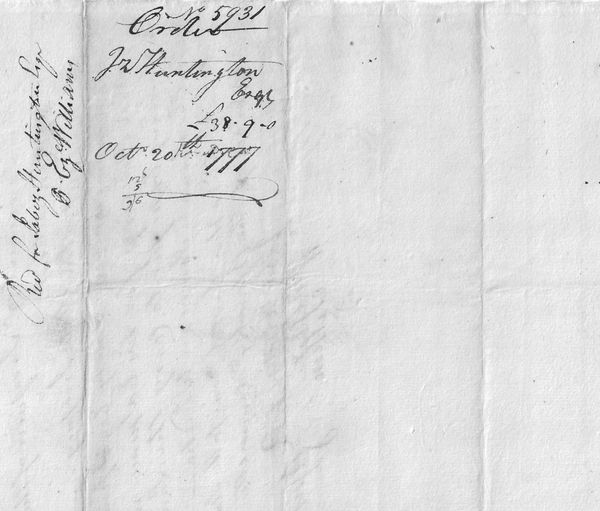 No 5931
Order
Jz Huntington
Esqr
£38-9-0
Octr 20th 1777
Recd for Jabez Huntington Esqr
Ez Williams